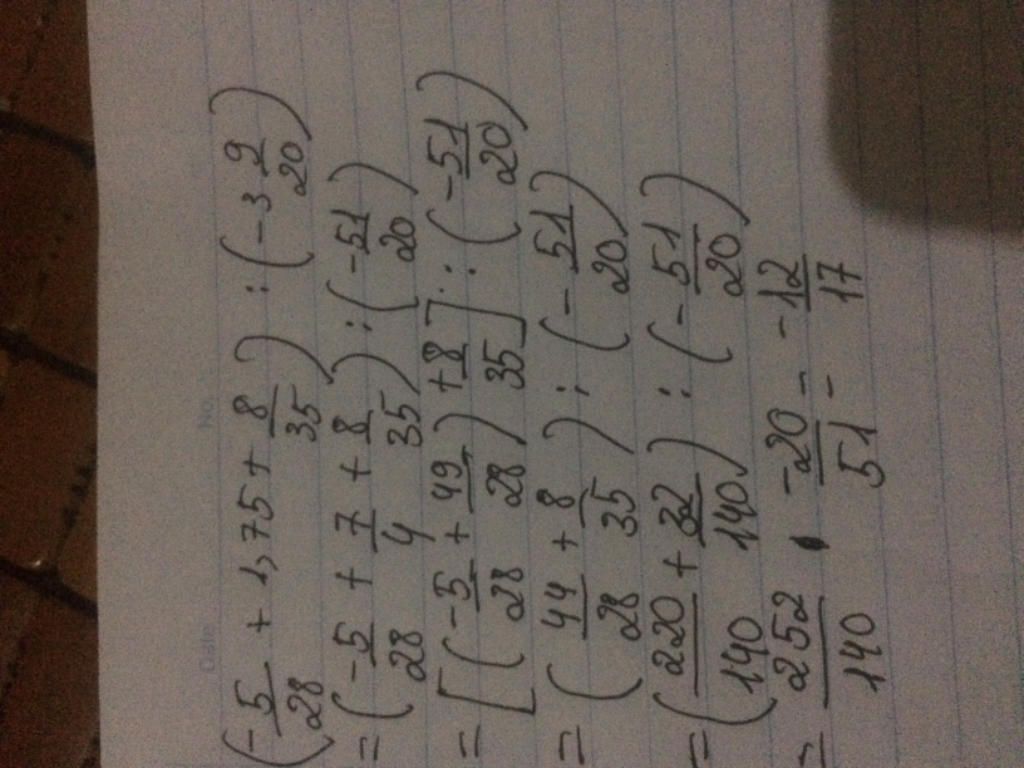 No.
Date
(-5/28 + 1,75 + 8/35) : (-3 9/20)
= (-5/28 + 7/4 + 8/35) : (-51/20)
= [(-5/28 + 49/28) + 8/35] : (-51/20)
= (44/28 + 8/35) : (-51/20)
= (220/140 + 32/140) : (-51/20)
= 252/140 . -20/51 = -12/17